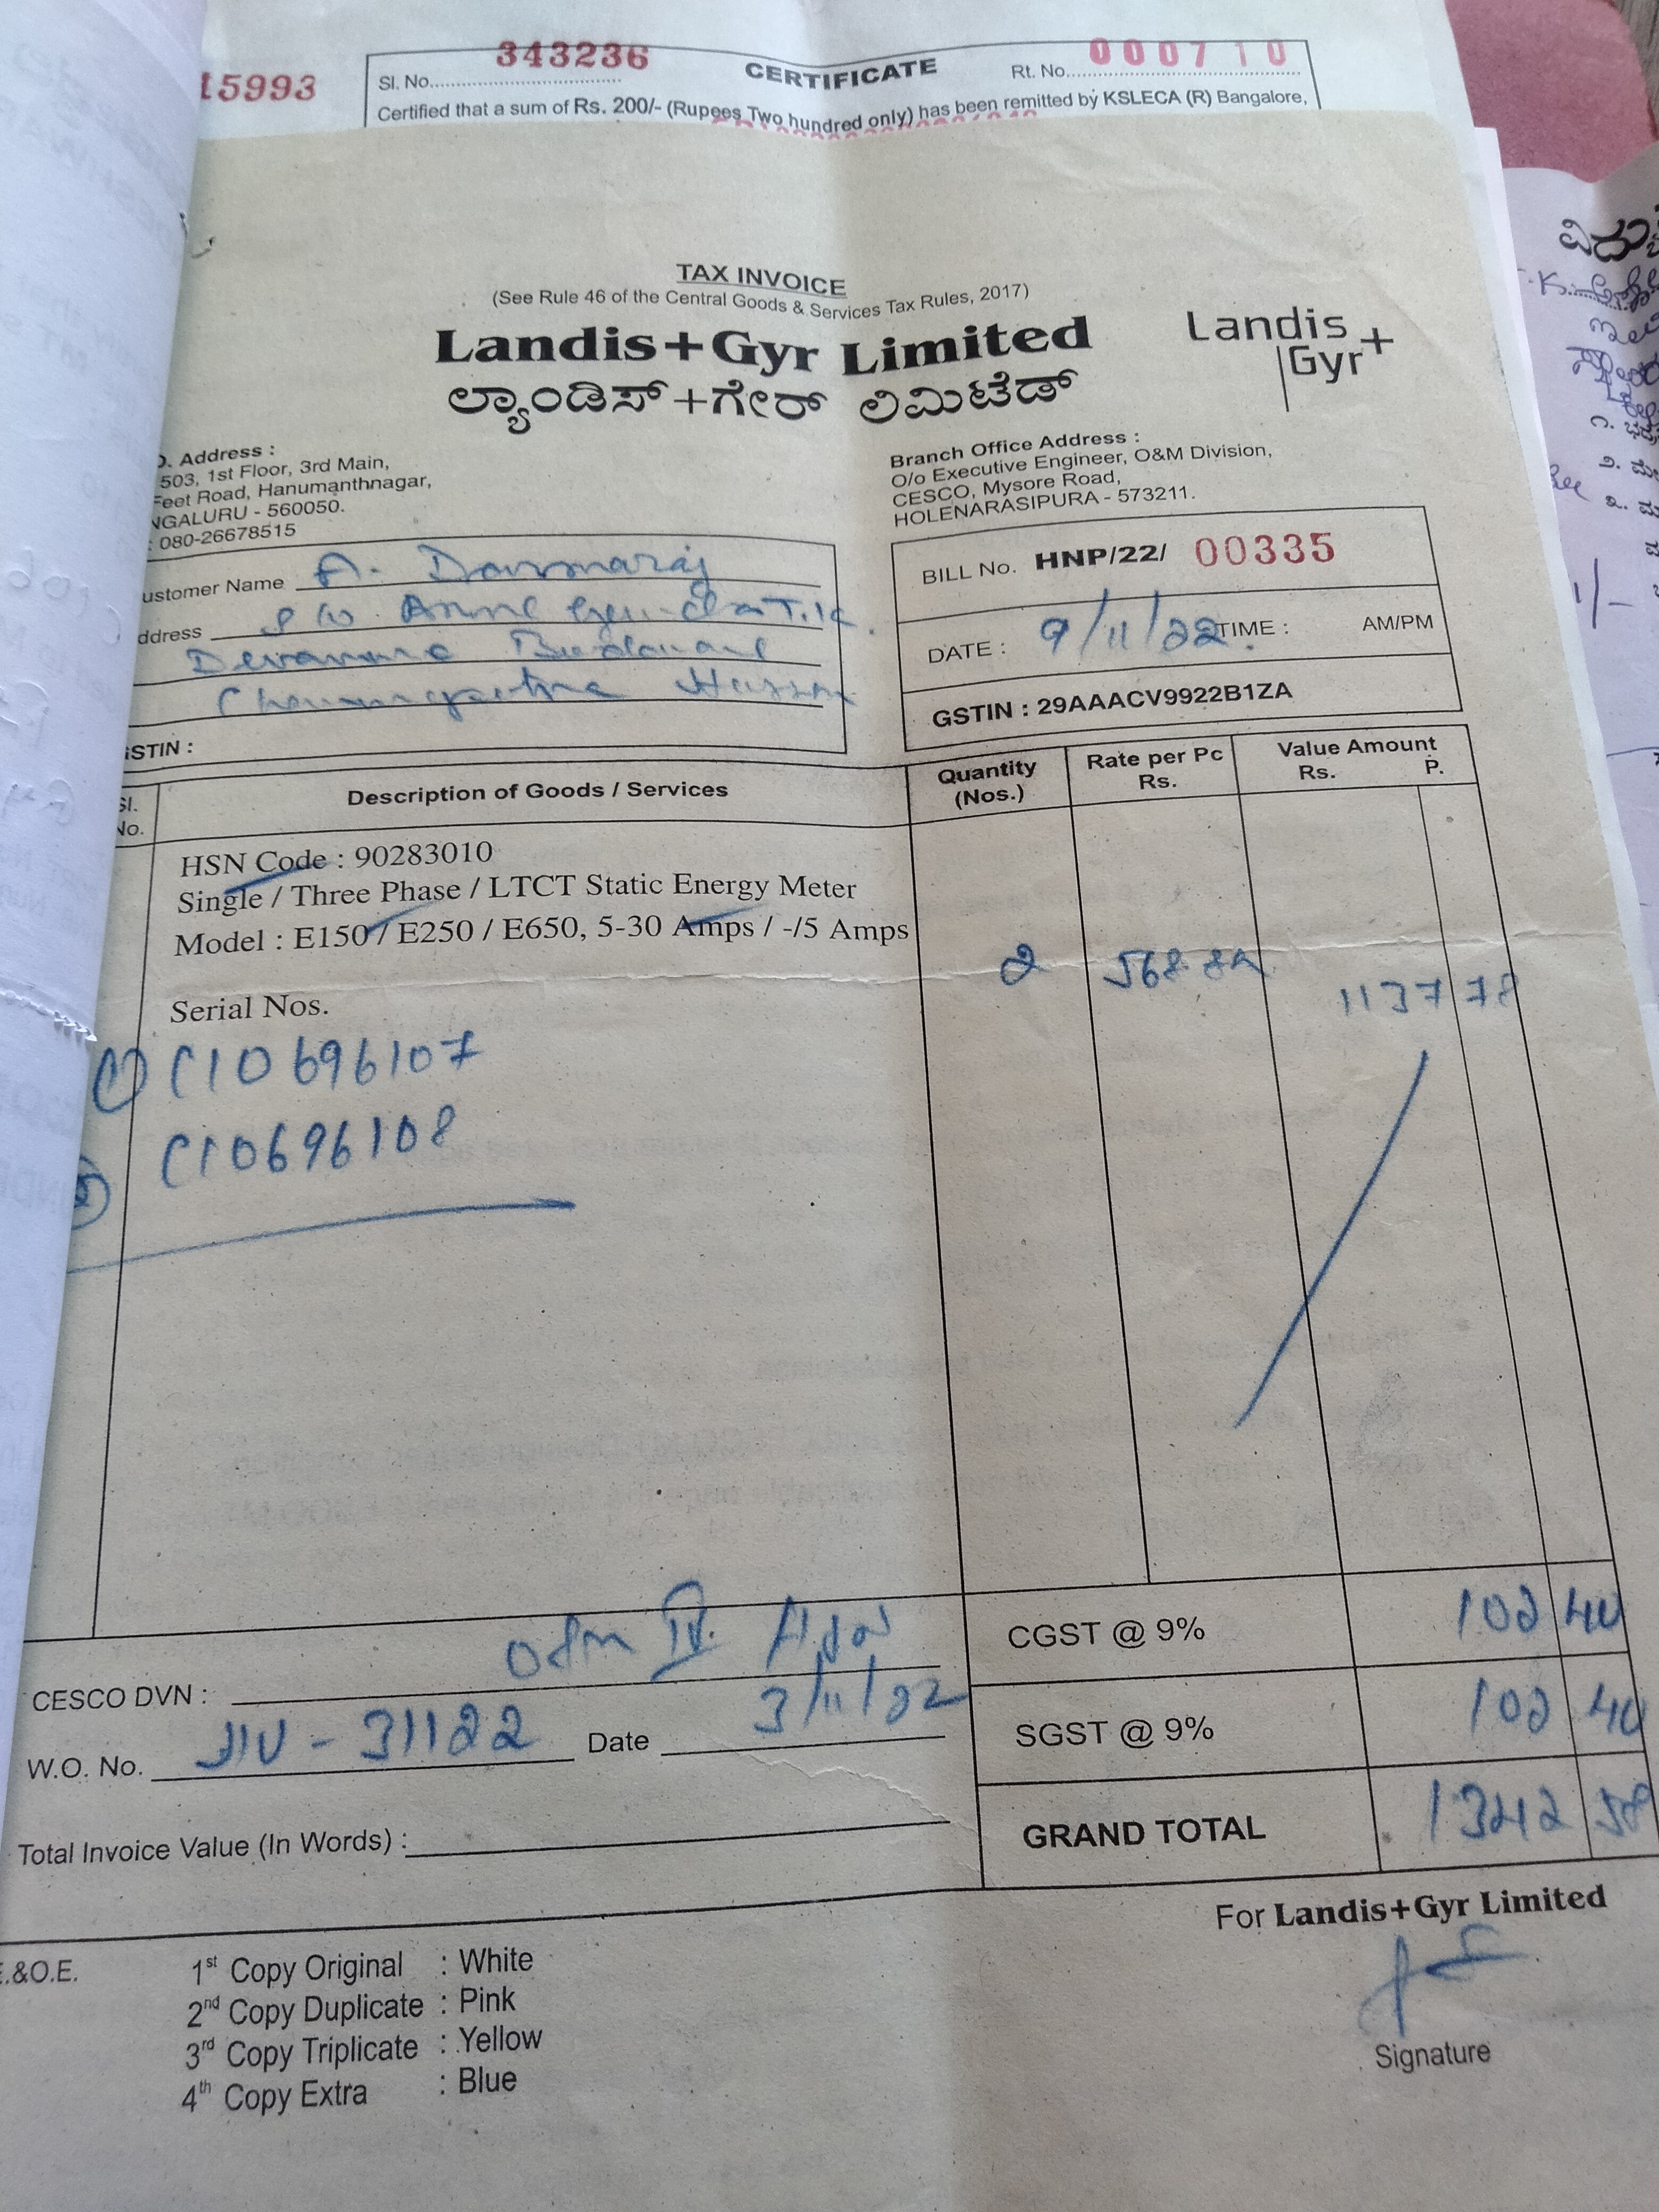 15993
Sl. No. 343236 CERTIFICATE Rt. No. 000710
Certified that a sum of Rs. 200/- (Rupees Two hundred only) has been remitted by KSLECA (R) Bangalore,
TAX INVOICE
(See Rule 46 of the Central Goods & Services Tax Rules, 2017)
Landis+Gyr Limited
ಲ್ಯಾಂಡಿಸ್+ಗೇರ್ ಲಿಮಿಟೆಡ್
Landis
Gyr+
Address :
503, 1st Floor, 3rd Main,
Feet Road, Hanumanthnagar,
NGALURU - 560050.
: 080-26678515
Branch Office Address :
O/o Executive Engineer, O&M Division,
CESCO, Mysore Road,
HOLENARASIPURA - 573211.
ustomer Name A.
ddress
Hassan
STIN :
BILL No. HNP/22/ 00335
DATE : 9/11/22 TIME : AM/PM
GSTIN : 29AAACV9922B1ZA
Sl. No. Description of Goods / Services Quantity (Nos.) Rate per Pc Rs. Value Amount Rs. P.
HSN Code : 90283010
Single / Three Phase / LTCT Static Energy Meter
Model : E150 / E250 / E650, 5-30 Amps / -/5 Amps
2 568.89 1137 78
Serial Nos.
1) C10696107
2) C10696108
CGST @ 9% 102 40
CESCO DVN :
SGST @ 9% 102 40
W.O. No. 31122 Date 3/11/22
GRAND TOTAL 1342 58
Total Invoice Value (In Words) :
For Landis+Gyr Limited
E.&O.E.
1st Copy Original : White
2nd Copy Duplicate : Pink
3rd Copy Triplicate : Yellow
4th Copy Extra : Blue
Signature